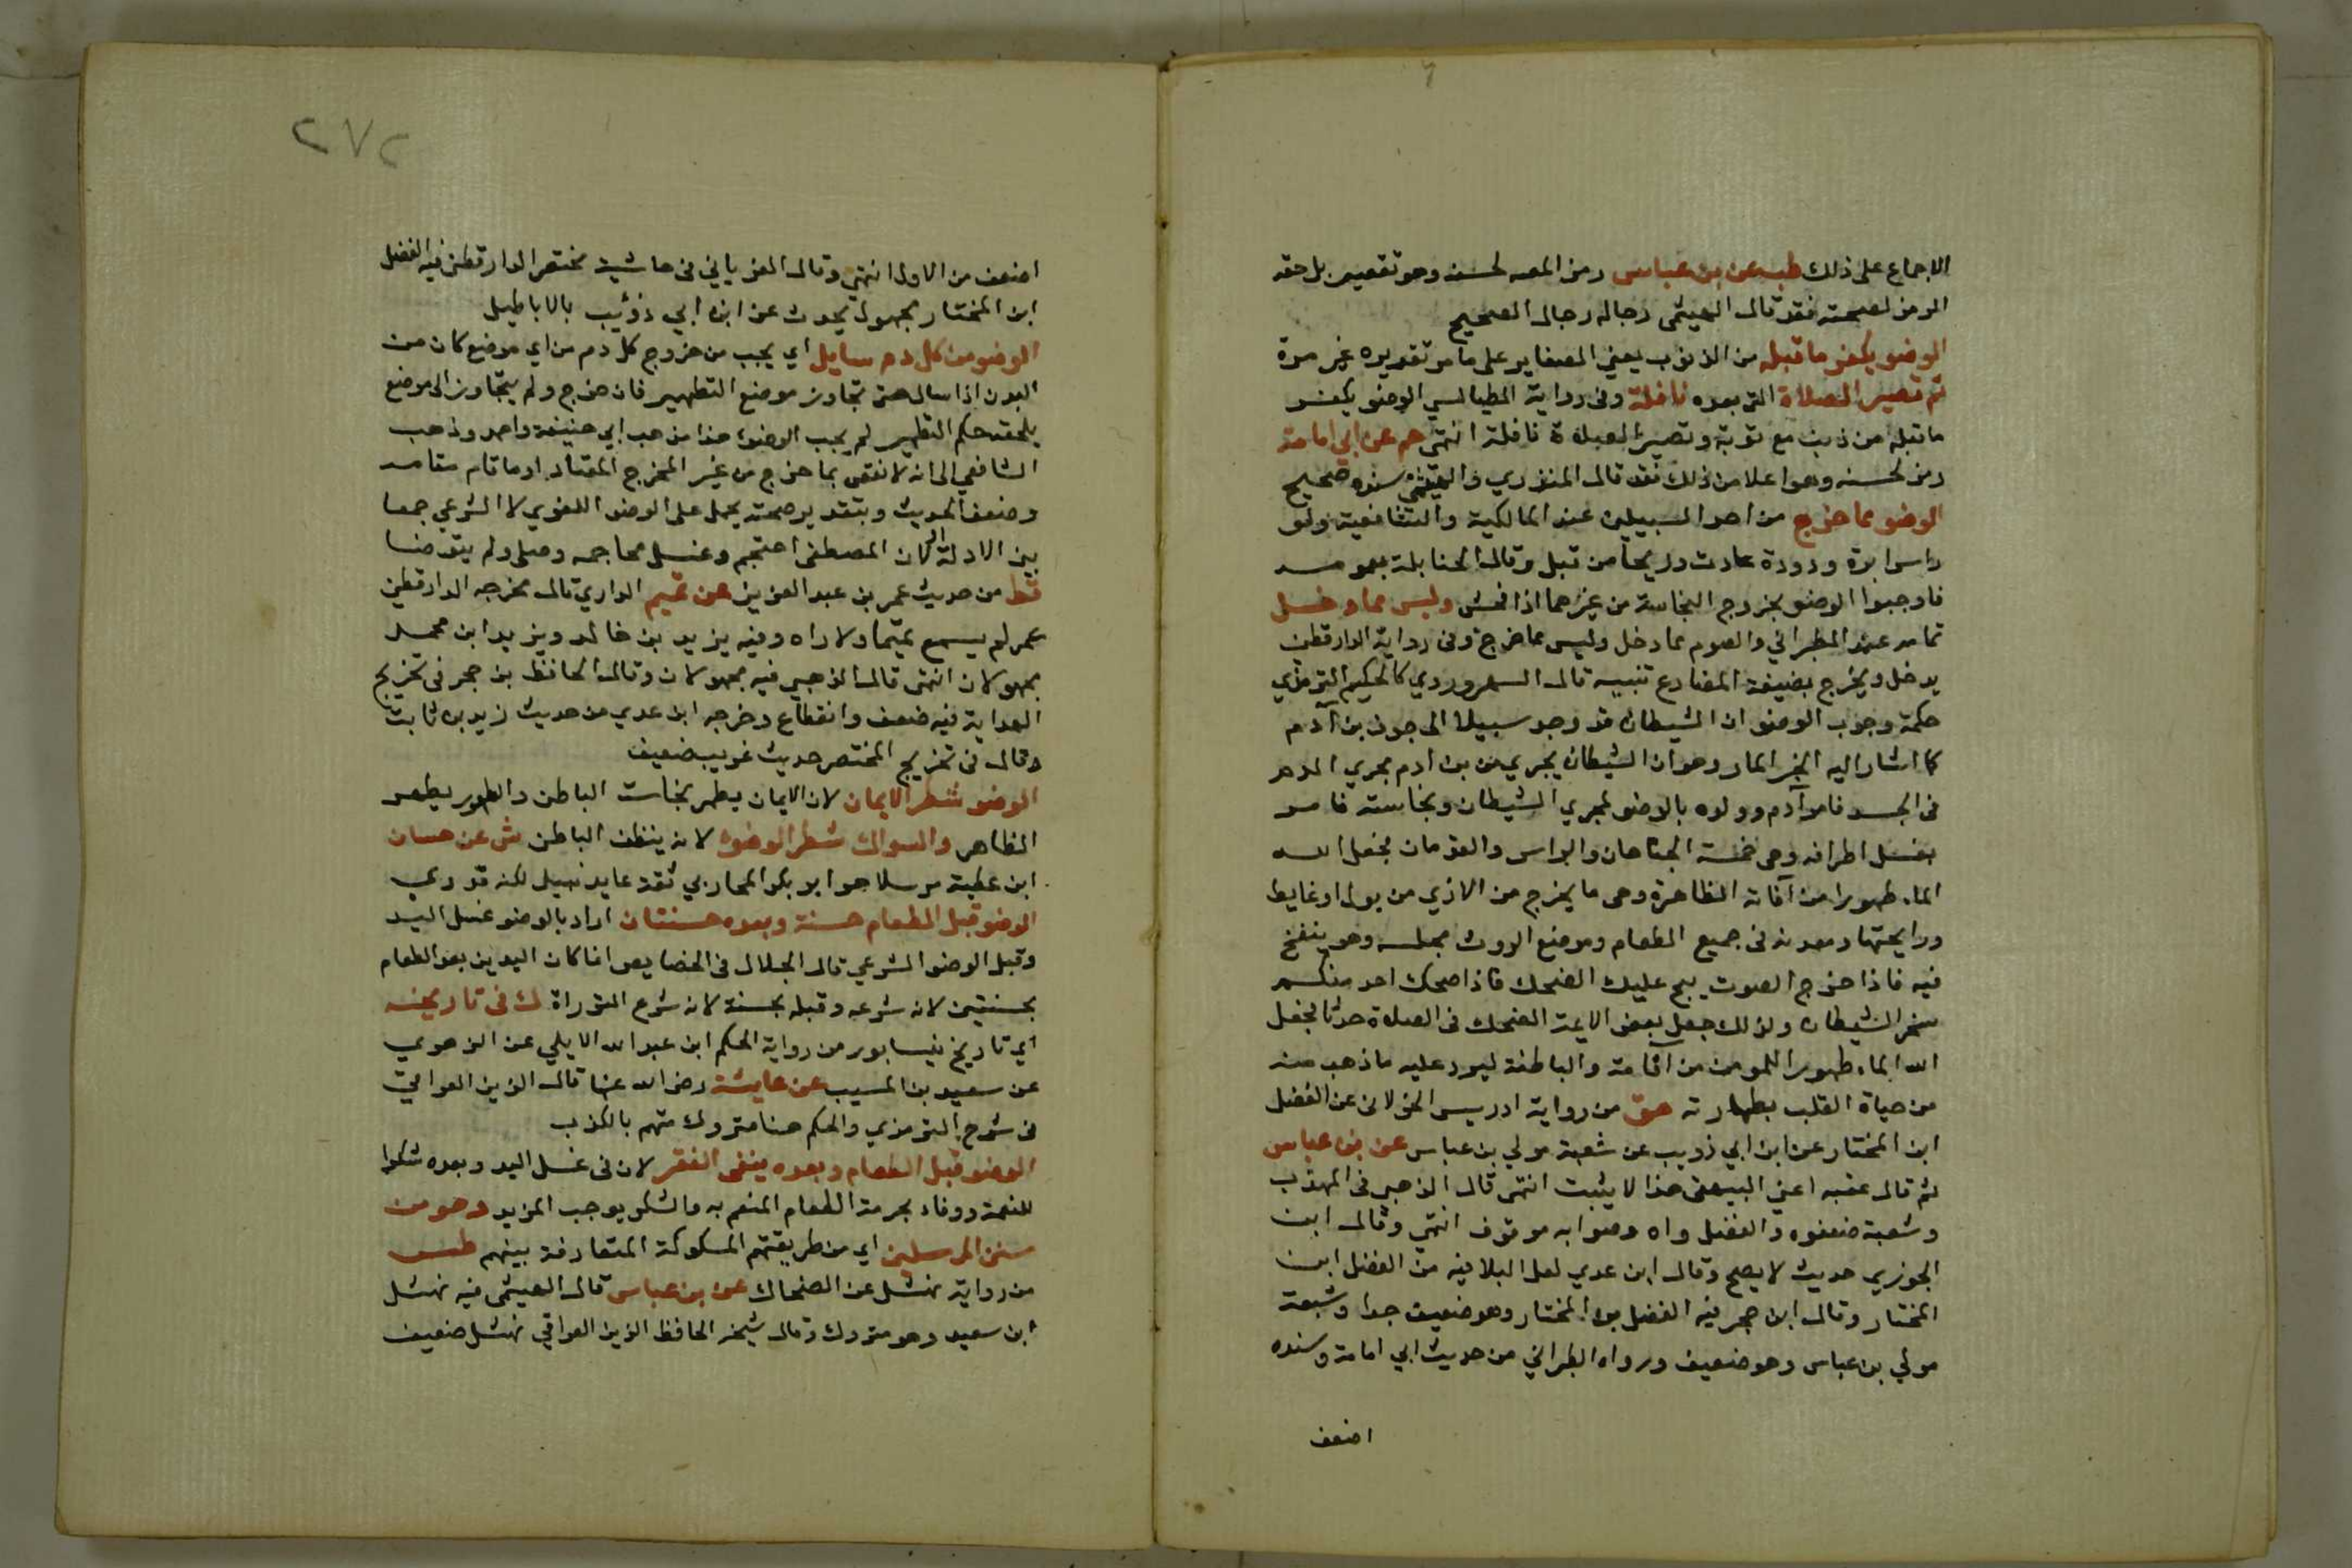 الاجماع على ذلك طب عن بن عباس رمز المص لحسنه وهو تقصير بل حقه
الرمز لصحته فقد قال الهيثمي رجاله رجال الصحيح
الوضو يكفر ما قبله من الذنوب يعني الصغاير على ما مر تقديره غير مرة
ثم تصير الصلاة التي بعده نافلة وفي رواية الطيالسي الوضو يكفر
ما قبله من ذنب مع توبة وتصير الصلاة نافلة انتهى حم عن ابي امامة
رمز لحسنه وهو اعلا من ذلك فقد قال المنذري والهيثمي سنده صحيح
الوضو مما خرج من احد السبيلين عند المالكية والشافعية ولو
راس ابرة ودودة عادت وريحا من قبل وقال الحنابلة بعمومه
فاوجبوا الوضو بخروج النجاسة من غيرهما اذا فحش وليس مما دخل
تمامه عند الطبراني والصوم مما دخل وليس مما خرج وفي رواية الدارقطني
يدخل ويخرج بصيغة المضارع تنبيه قال السهروردي كالحكيم الترمذي
حكمة وجوب الوضو ان الشيطان قد وجد سبيلا الى جوف بن آدم
كما اشار اليه الخبر المار وهو ان الشيطان يجري من بن ادم مجري الدم
في الجسد فامر آدم وولده بالوضو لمجري الشيطان ونجاسته فامر
بغسل اطرافه وهي خمسة الجناحان والراس والقدمان فجعل الله
الماء طهورا من آفاته الظاهرة وهي ما يخرج من الاذي من بول او غايط
ورايحتها ومعدنه في جميع الطعام وموضع الروث مجلسه وهو ينفخ
فيه فاذا خرج الصوت هيج عليك الضحك فاذا ضحك احد منكم
سخر الشيطان ولذلك جعل بعض الايمة الضحك في الصلاة حدثا فجعل
الله الماء طهورا للمومن من آفاته والباطنة ليرد عليه ما ذهب منه
من حياة القلب بطهارته هق من رواية ادريس الخولاني عن الفضل
ابن المختار عن ابن ابي ذويب عن شعبة مولي بن عباس عن بن عباس
ثم قال عقبه اعني البيهقي هذا لا يثبت انتهى قال الذهبي في المهذب
وشعبة ضعفوه والفضل واه وصوابه موقوف انتهى وقال ابن
الجوزي حديث لا يصح وقال ابن عدي لعل البلا فيه من الفضل ابن
المختار وقال ابن حجر فيه الفضل بن المختار وهو ضعيف جدا وشعبة
مولي بن عباس وهو ضعيف ورواه الطبراني من حديث ابي امامة وسنده
اضعف
٢٧٢
اضعف من الاول انتهى وقال الغرياني في حاشية مختصر الدارقطني فيه الفضل
ابن المختار مجهول يحدث عن ابن ابي ذؤيب بالاباطيل
الوضو من كل دم سايل اي يجب من خروج كل دم من اي موضع كان من
البدن اذا سال حتى تجاوز موضع التطهير فان خرج ولم يتجاوز الى موضع
يلحقه حكم التطهير لم يجب الوضوء هذا مذهب ابي حنيفة واحمد وذهب
الشافعي الى انه لا نقض بما خرج من غير المخرج المعتاد او ما قام مقامه
وضعف الحديث وبتقدير صحته يحمل على الوضو اللغوي لا الشرعي جمعا
بين الادلة لان المصطفى احتجم وغسل محاجمه وصلى ولم يتوضا
قط من حديث عمر بن عبد العزيز عن تميم الداري قال مخرجه الدارقطني
عمر لم يسمع تميما ولا راه وفيه يزيد بن خالد ويزيد ابن محمد
مجهولان انتهى قال الذهبي فيه مجهولان وقال الحافظ بن حجر في تخريج
الهداية فيه ضعف وانقطاع وخرجه ابن عدي من حديث زيد بن ثابت
وقال في تخريج المختصر حديث غريب ضعيف
الوضو شطر الايمان لان الايمان يطهر نجاست الباطن والطهور يطهر
الظاهر والسواك شطر الوضوء لانه ينظف الباطن ش عن حسان
ابن عطية مرسلا هو ابو بكر المحاربي ثقة عابد نبيل لكنه قدري
الوضو قبل الطعام حسنة وبعده حسنتان اراد بالوضو غسل اليد
وقيل الوضو الشرعي قال الجلال في الخصايص انما كان اليدين بعد الطعام
بحسنتين لانه شرعه وقبله بحسنة لانه شرع التوراة ك في تاريخه
اي تاريخ نيسابور من رواية الحكم ابن عبد الله الايلي عن الزهري
عن سعيد بن المسيب عن عايشة رضي الله عنها قال الزين العراقي
في شرح الترمذي والحكم هنا متروك متهم بالكذب
الوضو قبل الطعام وبعده ينفي الفقر لان في غسل اليد وبعده شكرا
للنعمة ووفاء بحرمة الطعام المنعم به والشكر يوجب المزيد وهو من
سنن المرسلين اي من طريقتهم المسلوكة المتعارفة بينهم طس
من رواية نهشل عن الضحاك عن بن عباس قال الهيثمي فيه نهشل
ابن سعيد وهو متروك وقال شيخه الحافظ الزين العراقي نهشل ضعيف